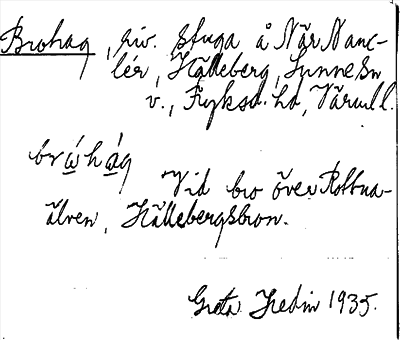 Brohag, riv. stuga å När Nanc-
lér, Hälleberg, Sunne sn
v., Fryksd. hd, Värml l.
bro̱hág
Vid bro över Rottna-
älven, Hällebergsbron.
Greta Hedin 1935.